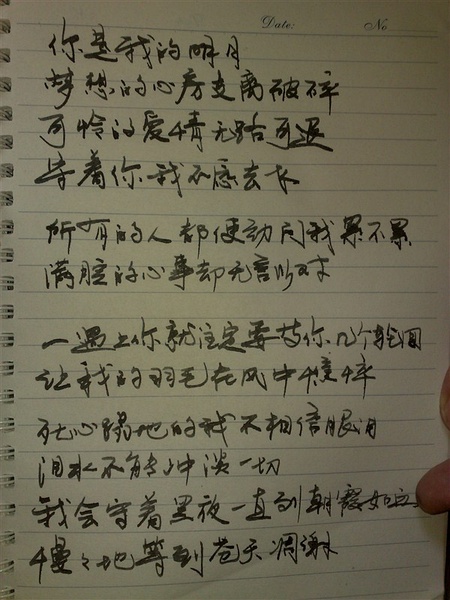 Date: No
你是我的明月
梦想的心房支离破碎
可怜的爱情无路可退
守着你我不愿去
所有的人都使劲问我累不累
满腔的心事却无言以对
一遇上你就注定要替你几个轮回
让我的羽毛在风中憔悴
死心踏地的我不相信眼泪
泪水不能冲溃一切
我会守着黑夜一直到朝霞如
慢々地等到苍天凋谢